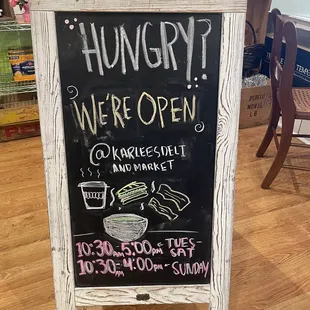 HUNGRY?
WE'RE OPEN
@KARLEESDELI
AND MARKET
10:30AM-5:00PM - TUES-
SAT
10:30AM-4:00PM - SUNDAY